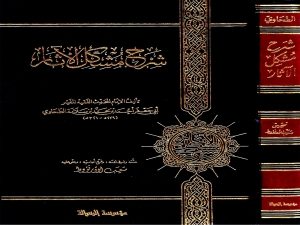 شرح مشكل الآثار
تأليف الإمام المحدث الفقيه المفسر
أبي جعفر أحمد بن محمد بن سلامة الطحاوي
شعيب الأرنؤوط
مؤسسة الرسالة
الطحاوي
شرح
مشكل
الآثار
تحقيق
شعيب الأرنؤوط
مؤسسة الرسالة